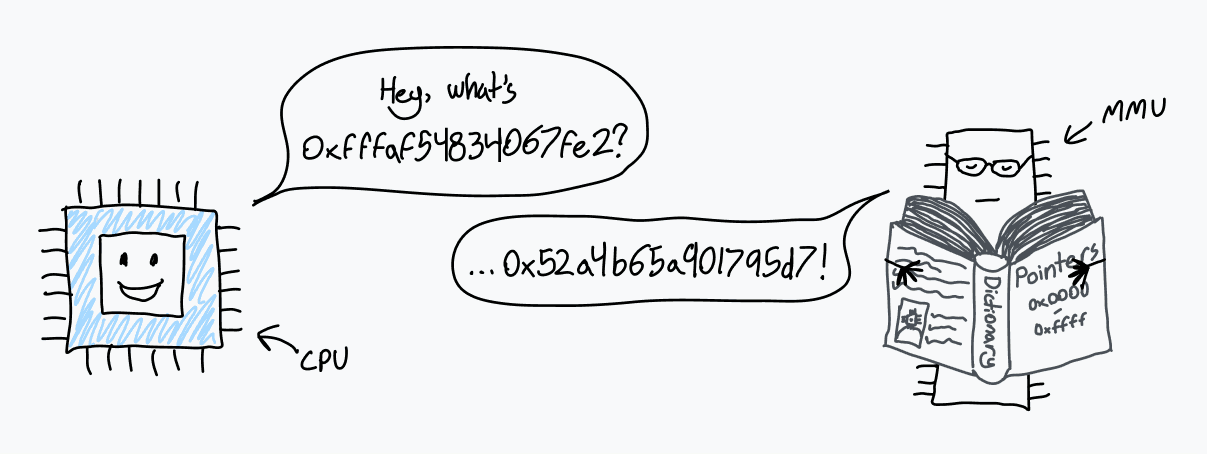 Hey, what's
0xfffaf54834067fe2?
MMU
...0x52a4b65a901795d7!
CPU
Dictionary
Pointers
0x0000
-
0xffff